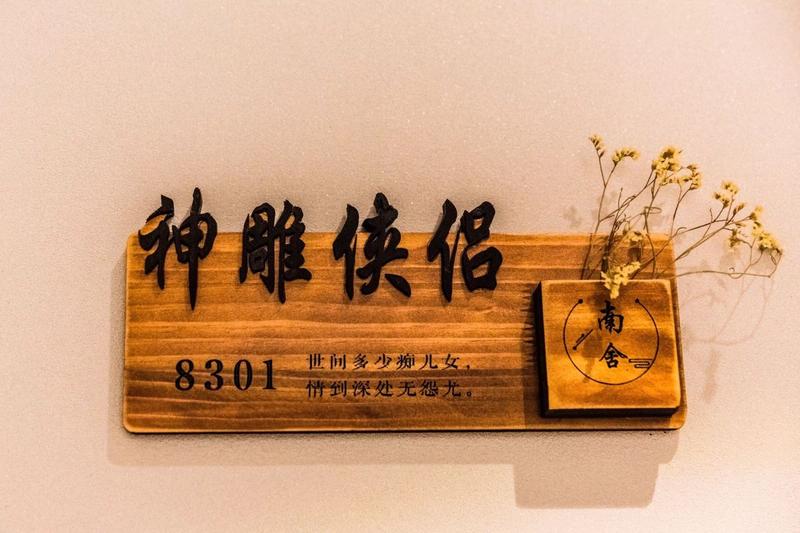 神雕侠侣
8301
世间多少痴儿女，
情到深处无怨尤。
南舍